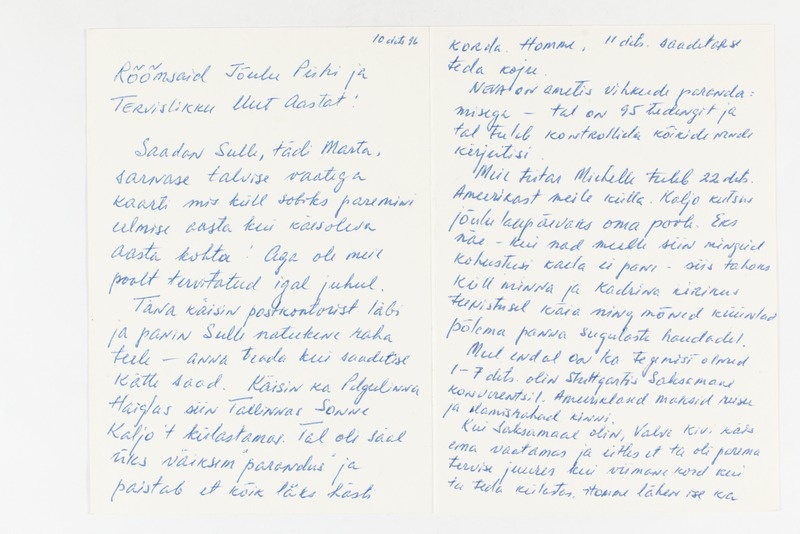 10 dets 96
RÕÕMSAID JÕULU PÜHI JA
TERVISLIKKU UUT AASTAT!
Saadan Sulle, tädi Marta,
sarnase talvise vaatega
kaarti mis küll sobiks paremini
eelmise aasta kui käesoleva
aasta kohta! Aga ole meie
poolt tervitatud igal juhul.
Täna käisin postkontorist läbi
ja panin Sulle natukene raha
teele – anna teada kui saadetise
kätte saad. Käisin ka Pelgulinna
Haiglas siin Tallinnas Sonne
Kaljo't külastamas. Tal oli seal
üks väiksem "parandus" ja
paistab et kõik läks hästi
korda. Homme, 11 dets. saadetakse
teda koju.
NEVA on ametis vihkude paranda=
misega – tal on 95 tudengit ja
tal tuleb kontrollida kõikide nende
kirjutisi.
Meie tütar Michelle tuleb 22 dets.
Ameerikast meile külla. Kaljo kutsus
jõululaupäevaks oma poole. Eks
näe – kui nad meile siin mingeid
kohustusi kaela ei pane – siis tahaks
küll minna ja Kadrina kirikus
teenistusel käia ning mõned küünlad
põlema panna sugulaste haudadel.
Meil endal on ka tegemist olnud
1–7 dets. olin Stuttgartis Saksamaal
konverentsil. Ameeriklased maksid reisu
ja elamiskulud kinni.
Kui Saksamaal olin, Valve Kivi käis
ema vaatamas ja ütles et ta oli parema
tervise juures kui viimane kord kui
ta teda külastas. Homme lähen ise ka